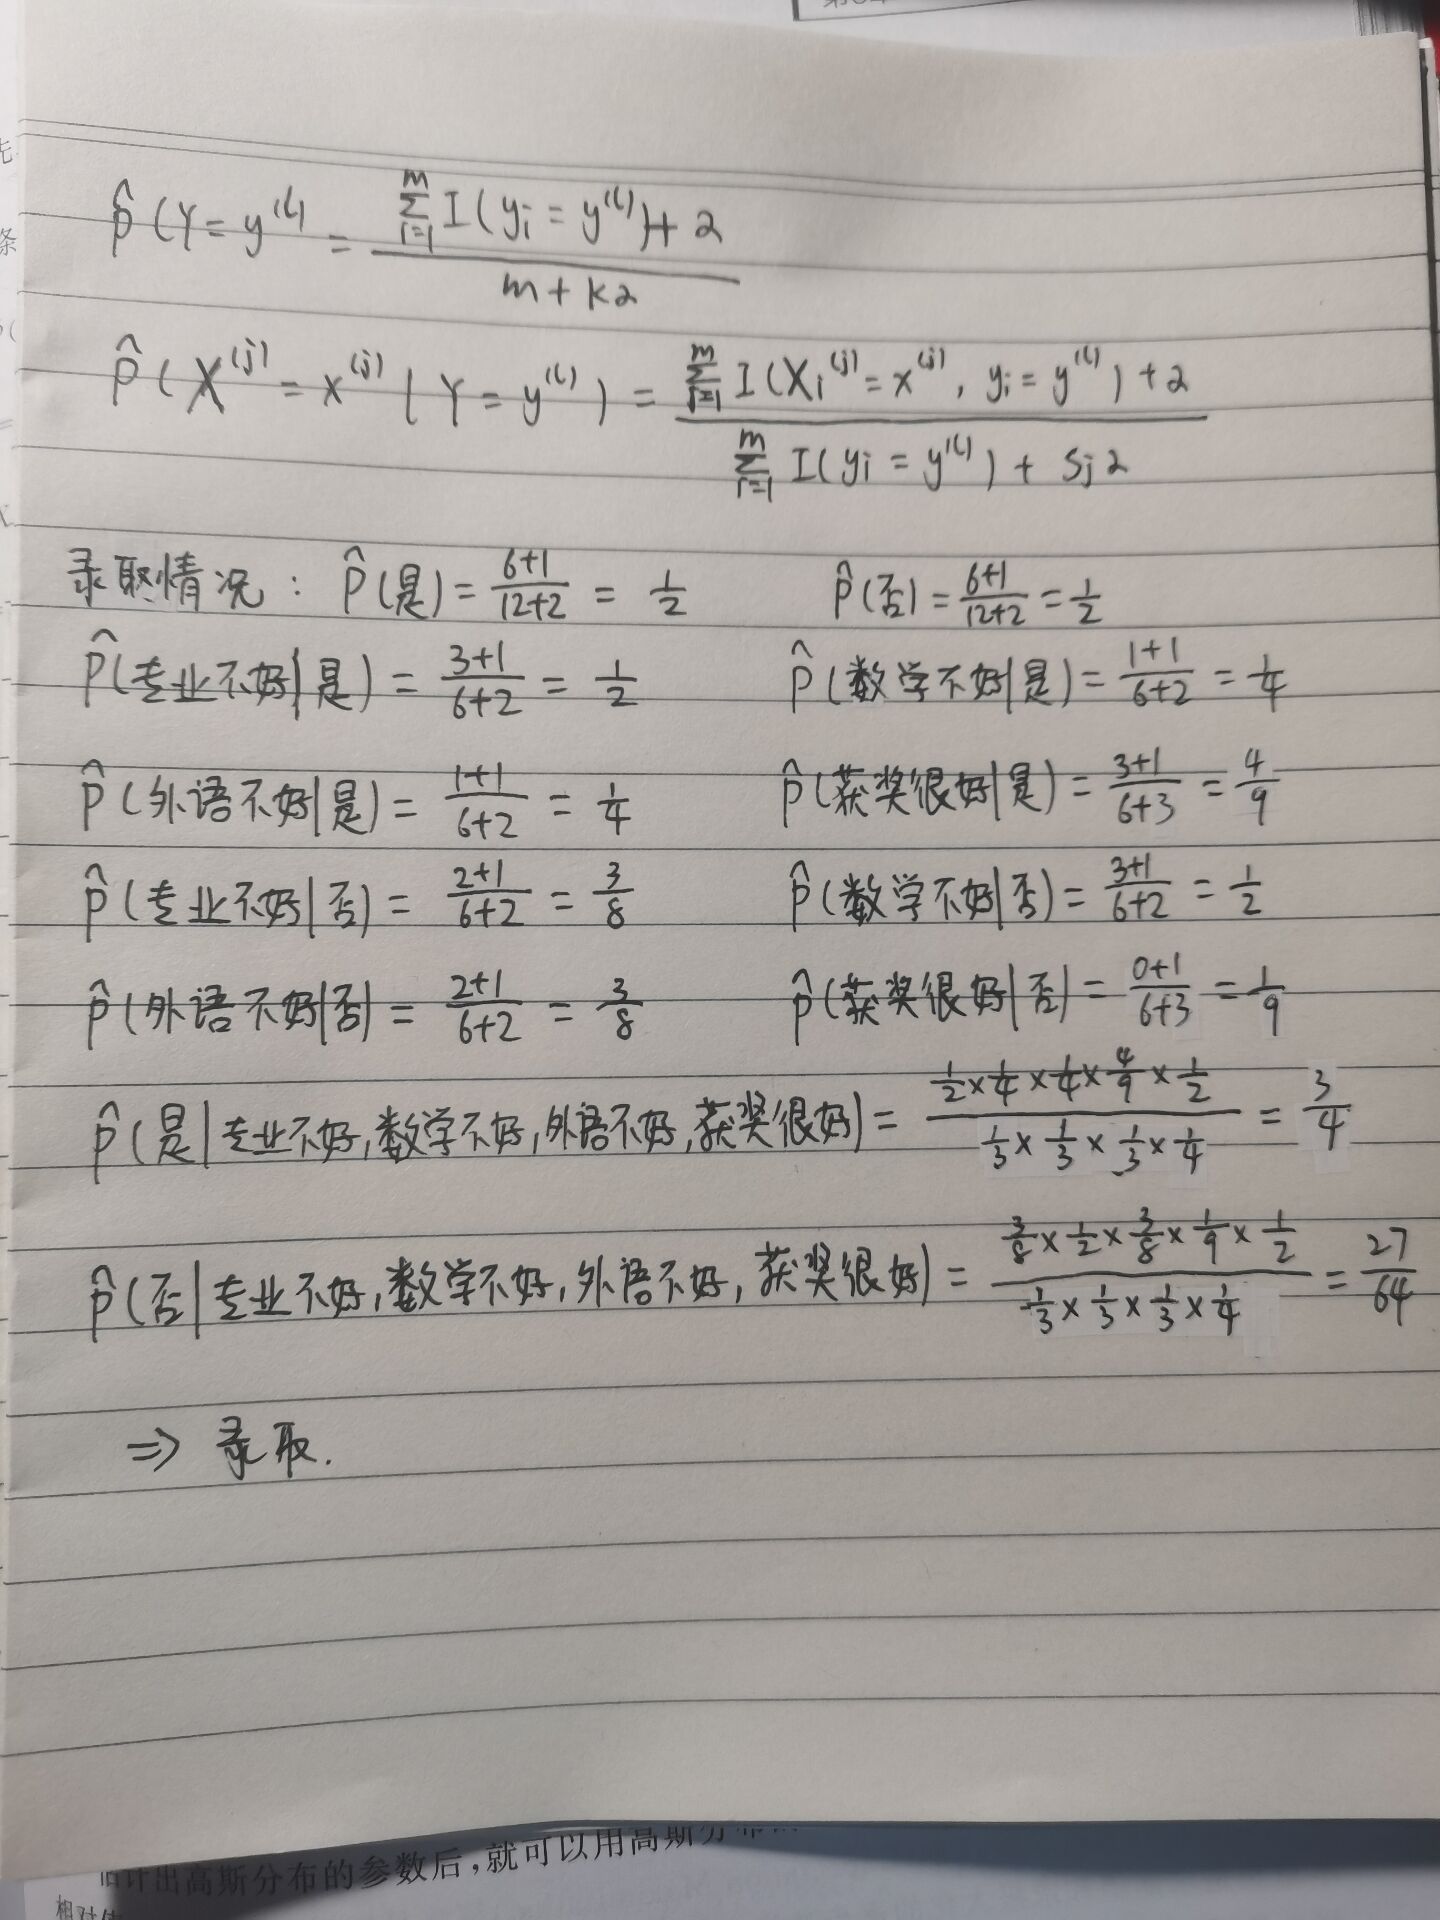 P̂(Y=y⁽ˡ⁾ = (∑ᵢ₌₁ᵐ I(yᵢ=y⁽ˡ⁾)+2) / (m+k2)
P̂(X⁽ʲ⁾=x⁽ʲ⁾|Y=y⁽ˡ⁾) = (∑ᵢ₌₁ᵐ I(Xᵢ⁽ʲ⁾=x⁽ʲ⁾, yᵢ=y⁽ˡ⁾)+2) / (∑ᵢ₌₁ᵐ I(yᵢ=y⁽ˡ⁾)+Sj2)
录取情况: P̂(是)=(6+1)/(12+2)=1/2 P̂(否)=(6+1)/(12+2)=1/2
P̂(专业不好|是)=(3+1)/(6+2)=1/2 P̂(数学不好|是)=(1+1)/(6+2)=1/4
P̂(外语不好|是)=(1+1)/(6+2)=1/4 P̂(获奖很好|是)=(3+1)/(6+3)=4/9
P̂(专业不好|否)=(2+1)/(6+2)=3/8 P̂(数学不好|否)=(3+1)/(6+2)=1/2
P̂(外语不好|否)=(2+1)/(6+2)=3/8 P̂(获奖很好|否)=(0+1)/(6+3)=1/9
P̂(是|专业不好,数学不好,外语不好,获奖很好)=(1/2×1/4×1/4×4/9×1/2)/(1/3×1/3×1/3×1/4)=3/4
P̂(否|专业不好,数学不好,外语不好,获奖很好)=(3/8×1/2×3/8×1/9×1/2)/(1/3×1/3×1/3×1/4)=27/64
⇒ 录取.
估计出高斯分布的参数后,就可以用高斯分布
相对